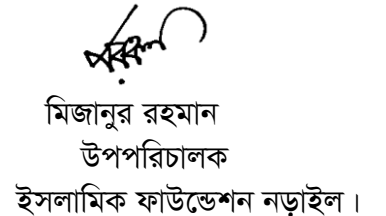 মিজানুর রহমান
উপপরিচালক
ইসলামিক ফাউন্ডেশন নড়াইল।